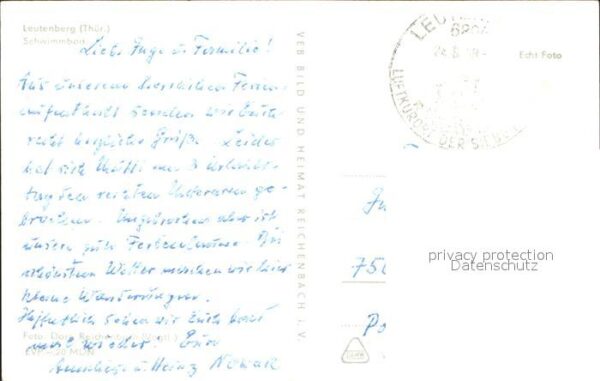 Leutenberg (Thür.)
Schwimmbad
Liebe Inge u. Familie!
Aus unserem herrlichen Ferien-
aufenthalt senden wir Euch
recht herzliche Grüße. Leider
hat sich Mutti am 3. Urlaubs-
tag den rechten Unterarm ge-
brochen. Ungebrochen aber ist
unsere gute Ferienlaune. Bei
schönstem Wetter machen wir hier
kleine Wanderungen.
Hoffentlich sehen wir Euch bald
mal wieder. Eure
Anneliese u. Heinz Nowak
Foto: Dora Reichenbach (Vogtl.)
EVP –20 MDN
VEB BILD UND HEIMAT REICHENBACH i. V.
Echt Foto
LUFTKURORT DER SIEBEN
750
privacy protection
Datenschutz